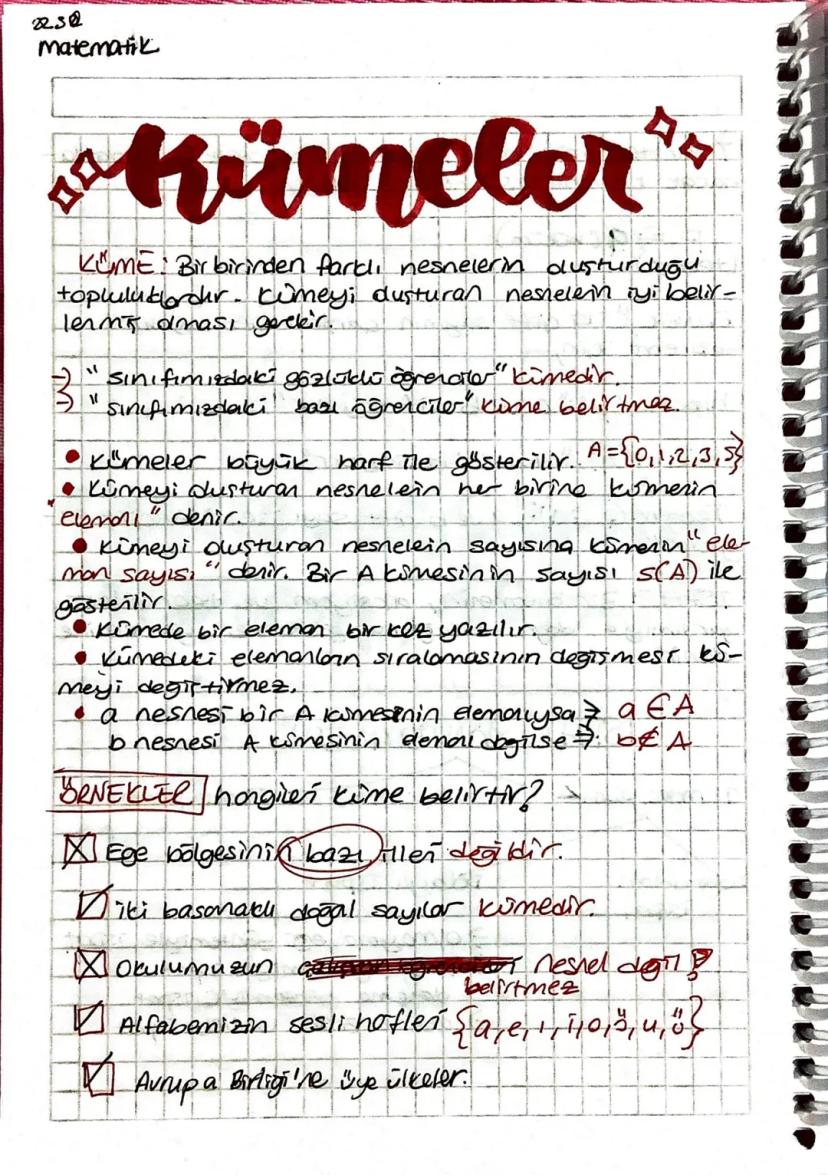 matematik
Kümeler
KÜME: Birbirinden farklı nesnelerin oluşturduğu
topluluklardır. Kümeyi oluşturan nesnelerin iyi belir-
lenmiş olması gerekir.
→ "sınıfımızdaki gözlüklü öğrenciler" kümedir.
→ "sınıfımızdaki bazı öğrenciler" küme belirtmez.
• Kümeler büyük harf ile gösterilir. A={0,1,2,3,5}
• Kümeyi oluşturan nesnelerin her birine kümenin
"elemanı" denir.
• Kümeyi oluşturan nesnelerin sayısına kümenin "ele-
man sayısı" denir. Bir A kümesinin sayısı s(A) ile
gösterilir.
• Kümede bir eleman bir kez yazılır.
• Kümedeki elemanların sıralamasının değişmesi kü-
meyi değiştirmez.
• a nesnesi bir A kümesinin elemanıysa ⇒ a ∈ A
b nesnesi A kümesinin elemanı değilse ⇒ b ∉ A
ÖRNEKLER hangileri küme belirtir?
☒ Ege bölgesinin bazı illeri değildir.
☑ iki basamaklı doğal sayılar kümedir.
☒ Okulumuzun nesnel değil
belirtmez
☑ Alfabemizin sesli harfleri {a,e,ı,i,o,ö,u,ü}
☑ Avrupa Birliği'ne üye ülkeler.